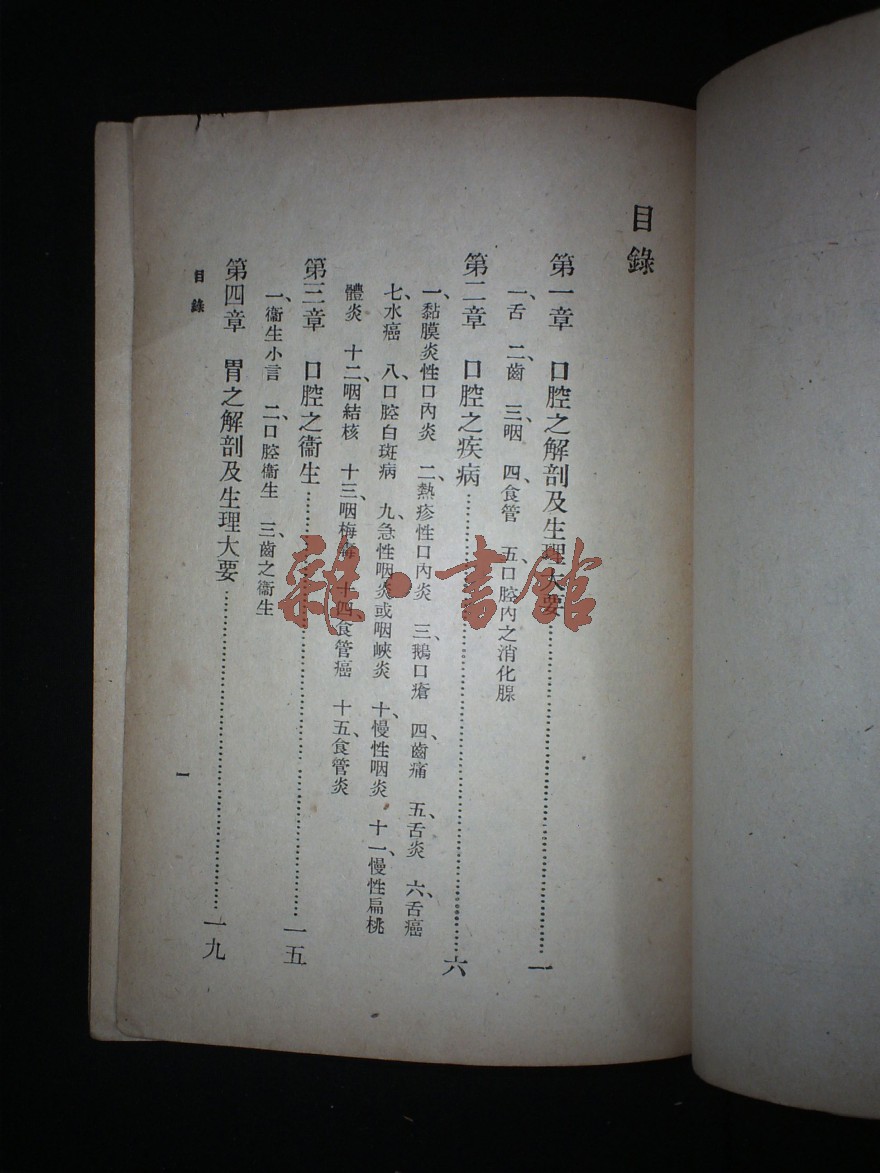 目錄
第一章 口腔之解剖及生理大要……一
一、舌 二、齒 三、咽 四、食管 五、口腔內之消化腺
第二章 口腔之疾病……六
一、黏膜炎性口內炎 二、熱疹性口內炎 三、鵝口瘡 四、齒痛 五、舌炎 六、舌癌
七、水癌 八、口腔白斑病 九、急性咽炎或咽峽炎 十、慢性咽炎 十一、慢性扁桃
體炎 十二、咽結核 十三、咽梅毒 十四、食管癌 十五、食管炎
第三章 口腔之衞生……一五
一、衞生小言 二、口腔衞生 三、齒之衞生
第四章 胃之解剖及生理大要……一九
目錄
一
雜·書館